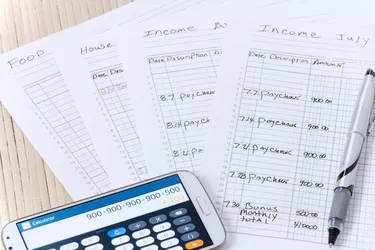 Food
House
Date Desc
Income Au
Date Description A
8.7 paycheck
8.14 paycheck
8.21 paycheck
Income July
Date Description Amount
7.7 paycheck 900.00
7.14 paycheck 900.00
7.21 paycheck 900.00
7.28 paycheck 900.00
7.30 Bonus 500.00
monthly
total 4100.00
Calculator
900+900+900+900+500